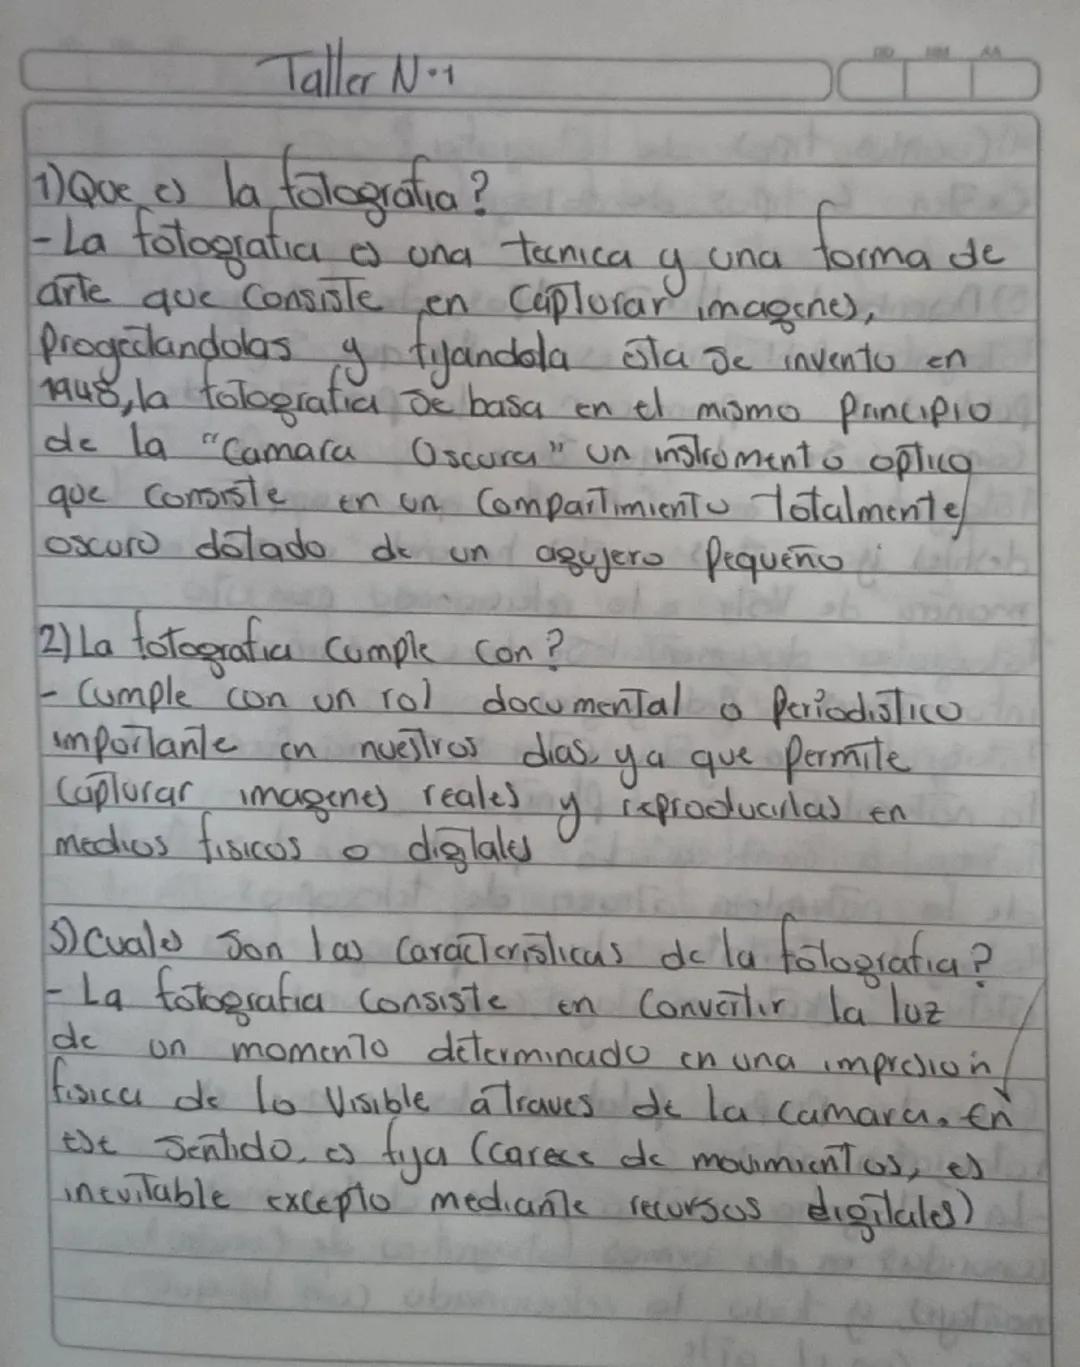 Taller N·1
DD MM AA
1) Que es la fotografia?
- La fotografia es una tecnica y una forma de
arte que consiste en Capturar imagenes,
Progectandolas y fijandola esta se invento en
1948, la fotografia se basa en el mismo Principio
de la "Camara Oscura" un instrumento optico
que consiste en un Compartimiento Totalmente
oscuro dotado de un agujero Pequeño
2) La fotografia Cumple Con?
- Cumple con un rol documental o Periodistico
importante en nuestros dias, ya que Permite
Capturar imagenes reales y reproducirlas en
medios fisicos o digitales
3) Cuales Son las Caracteristicas de la fotografia?
- La fotografia Consiste en Convertir la luz
de un momento determinado en una impresion
fisica de lo Visible atraves de la camara. En
ese Sentido, es fija (carece de movimientos, es
inevitable excepto mediante recursos digitales)